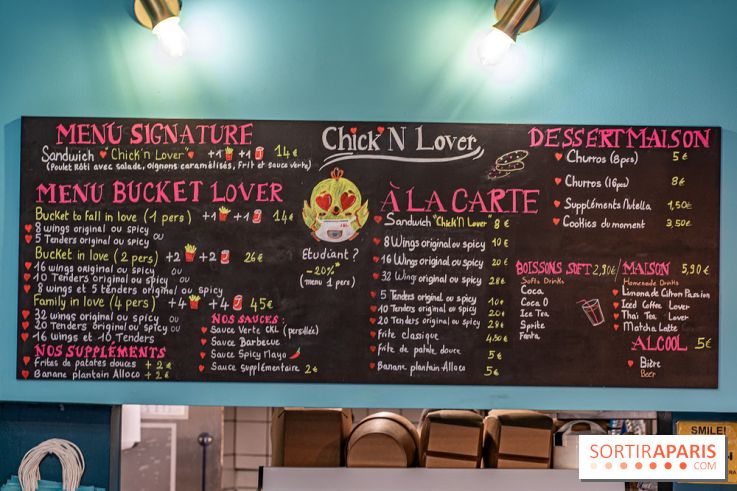 MENU SIGNATURE
Sandwich "Chick'n Lover" +1 +1 14€
(Poulet Rôti avec salade, oignons caramélisés, Frit et sauce verte)
MENU BUCKET LOVER
Bucket to fall in love (1 pers) +1 +1 14€
8 wings original ou spicy ou
5 Tenders original ou spicy
Bucket in love (2 pers) +2 +2 26€
16 wings original ou spicy ou
10 Tenders original ou spicy ou
8 wings et 5 tenders original ou spicy
Family in love (4 pers) +4 +4 45€
32 wings original ou spicy ou
20 Tenders original ou spicy ou
16 wings et 10 Tenders
NOS SUPPLÉMENTS
Frites de patates douces + 2€
Banane plantain Alloco + 2€
Chick'N Lover
Etudiant ?
-20%*
(menu 1 pers)
NOS SAUCES :
Sauce Verte CKL (persillée)
Sauce Barbecue
Sauce Spicy Mayo
Sauce supplémentaire 2€
À LA CARTE
Sandwich "Chick'N Lover" 8€
8 Wings original ou spicy 10€
16 Wings original ou spicy 20€
32 Wings original ou spicy 28€
5 Tenders original ou spicy 10€
10 Tenders original ou spicy 20€
20 Tenders original ou spicy 28€
Frite classique 4,50€
Frite de patate douce 5€
Banane plantain Alloco 5€
DESSERT MAISON
Churros (8pcs) 5€
Churros (16pcs) 8€
Suppléments Nutella 1,50€
Cookies du moment 3,50€
BOISSONS SOFT 2,90€/
Softs Drinks
Coca
Coca 0
Ice Tea
Sprite
Fanta
MAISON 5,90€
Homemade Drinks
Limonade Citron Passion
Iced Coffee Lover
Thaï Tea Lover
Matcha Latte
ALCOOL 5€
Bière
Beer
SMILE!
SORTIRAPARIS
.COM